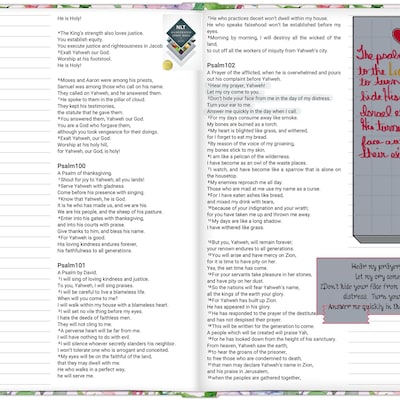 He is Holy!
⁴The King's strength also loves justice.
You establish equity.
You execute justice and righteousness in Jacob
⁵Exalt Yahweh our God.
Worship at his footstool.
He is Holy!
⁶Moses and Aaron were among his priests,
Samuel was among those who call on his name.
They called on Yahweh, and he answered them.
⁷He spoke to them in the pillar of cloud.
They kept his testimonies,
the statute that he gave them.
⁸You answered them, Yahweh our God.
You are a God who forgave them,
although you took vengeance for their doings.
⁹Exalt Yahweh, our God.
Worship at his holy hill,
for Yahweh, our God, is holy!
Psalm100
A Psalm of thanksgiving.
¹Shout for joy to Yahweh, all you lands!
²Serve Yahweh with gladness.
Come before his presence with singing.
³Know that Yahweh, he is God.
It is he who has made us, and we are his.
We are his people, and the sheep of his pasture.
⁴Enter into his gates with thanksgiving,
and into his courts with praise.
Give thanks to him, and bless his name.
⁵For Yahweh is good.
His loving kindness endures forever,
his faithfulness to all generations.
Psalm101
A Psalm by David.
¹I will sing of loving kindness and justice.
To you, Yahweh, I will sing praises.
²I will be careful to live a blameless life.
When will you come to me?
I will walk within my house with a blameless heart.
³I will set no vile thing before my eyes.
I hate the deeds of faithless men.
They will not cling to me.
⁴A perverse heart will be far from me.
I will have nothing to do with evil.
⁵I will silence whoever secretly slanders his neighbor.
I won't tolerate one who is arrogant and conceited.
⁶My eyes will be on the faithful of the land,
that they may dwell with me.
He who walks in a perfect way,
he will serve me.
NLT
⁷He who practices deceit won't dwell within my house.
He who speaks falsehood won't be established before my eyes.
⁸Morning by morning, I will destroy all the wicked of the land,
to cut off all the workers of iniquity from Yahweh's city.
Psalm102
A Prayer of the afflicted, when he is overwhelmed and pours out his complaint before Yahweh.
¹Hear my prayer, Yahweh!
Let my cry come to you.
²Don't hide your face from me in the day of my distress.
Turn your ear to me.
Answer me quickly in the day when I call.
³For my days consume away like smoke.
My bones are burned as a torch.
⁴My heart is blighted like grass, and withered,
for I forget to eat my bread.
⁵By reason of the voice of my groaning,
my bones stick to my skin.
⁶I am like a pelican of the wilderness.
I have become as an owl of the waste places.
⁷I watch, and have become like a sparrow that is alone on the housetop.
⁸My enemies reproach me all day.
Those who are mad at me use my name as a curse.
⁹For I have eaten ashes like bread,
and mixed my drink with tears,
¹⁰because of your indignation and your wrath;
for you have taken me up and thrown me away.
¹¹My days are like a long shadow.
I have withered like grass.
¹²But you, Yahweh, will remain forever;
your renown endures to all generations.
¹³You will arise and have mercy on Zion,
for it is time to have pity on her.
Yes, the set time has come.
¹⁴For your servants take pleasure in her stones,
and have pity on her dust.
¹⁵So the nations will fear Yahweh's name,
all the kings of the earth your glory.
¹⁶For Yahweh has built up Zion.
He has appeared in his glory.
¹⁷He has responded to the prayer of the destitute,
and has not despised their prayer.
¹⁸This will be written for the generation to come.
A people which will be created will praise Yah,
¹⁹for he has looked down from the height of his sanctuary.
From heaven, Yahweh saw the earth,
²⁰to hear the groans of the prisoner,
to free those who are condemned to death,
²¹that men may declare Yahweh's name in Zion,
and his praise in Jerusalem,
²²when the peoples are gathered together,
The psal
to the
to turn
hide his
Israel
his
face
their
Hear my prayer
let my cry come
Don't hide your face from
distress. Turn your
Answer me quickly in th